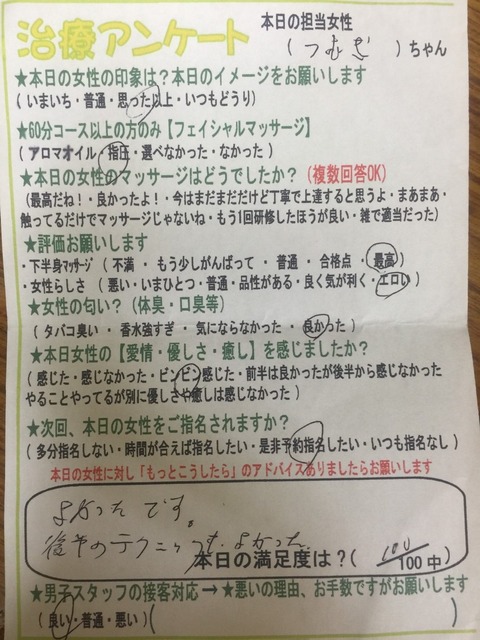 治療アンケート
本日の担当女性
(つむぎ)ちゃん
★本日の女性の印象は?本日のイメージをお願いします
(いまいち・普通・思った以上・いつもどうり)
★60分コース以上の方のみ【フェイシャルマッサージ】
(アロマオイル 指圧・選べなかった・なかった)
★本日の女性のマッサージはどうでしたか?(複数回答OK)
(最高だね!・良かったよ!・今はまだまだだけど丁寧で上達すると思うよ・まあまあ・
触ってるだけでマッサージじゃないね・もう1回研修したほうが良い・雑で適当だった)
★評価お願いします
・下半身マッサージ(不満・もう少しがんばって・普通・合格点・最高)
・女性らしさ(悪い・いまひとつ・普通・品性がある・良く気が利く・エロい)
★女性の匂い?(体臭・口臭等)
(タバコ臭い・香水強すぎ・気にならなかった・良かった)
★本日女性の【愛情・優しさ・癒し】を感じましたか?
(感じた・感じなかった・ビンビン感じた・前半は良かったが後半から感じなかった
やることやってるが別に優しさや癒しは感じなかった)
★次回、本日の女性をご指名されますか?
(多分指名しない・時間が合えば指名したい・是非予約指名したい・いつも指名なし)
本日の女性に対し「もっとこうしたら」のアドバイスありましたらお願いします
よかったです。
後半のテクニックも よかった
本日の満足度は?(100/100中)
★男子スタッフの接客対応→★悪いの理由、お手数ですがお願いします
(良い・普通・悪い)( )